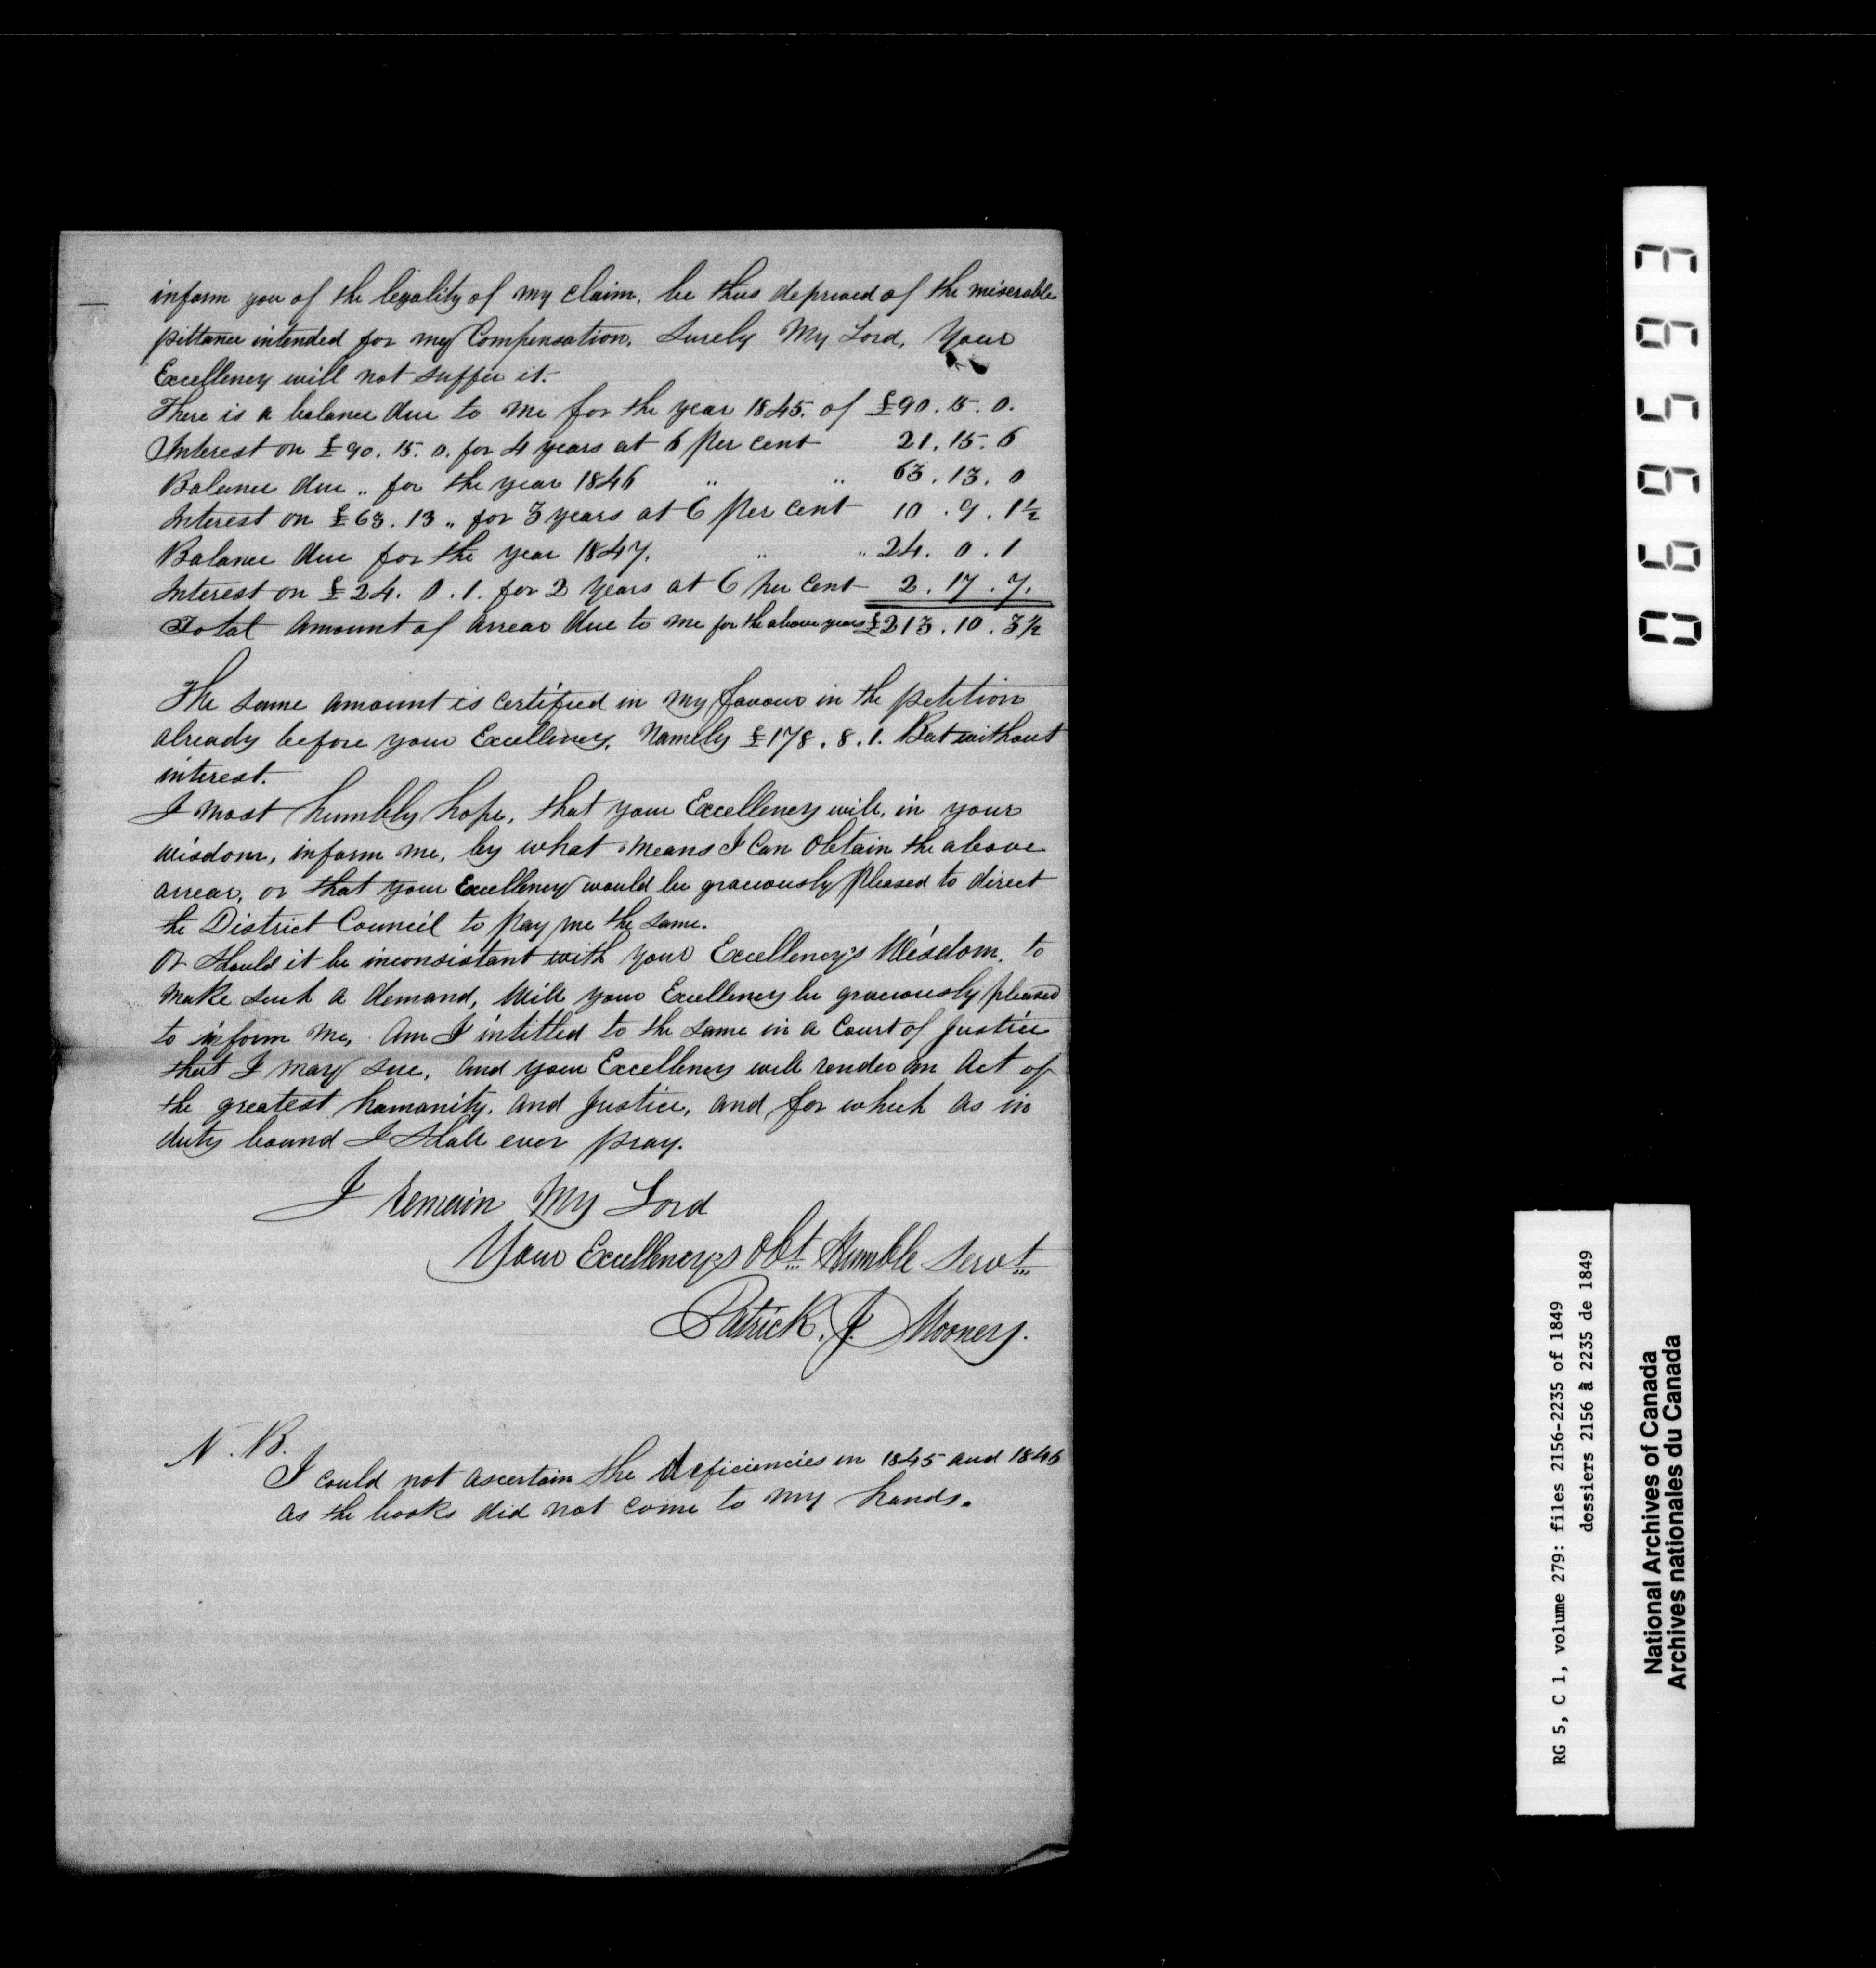 inform you of the legality of my claim, be thus deprived of the miserable
pittance intended for my Compensation, Surely My Lord, Your
Excellency will not suffer it.
There is a balance due to me for the year 1845. of £90. 15. 0.
Interest on £90. 15. 0. for 4 years at 6 per cent 21. 15. 6
Balance due „ for the year 1846 „ „ 63. 13. 0
Interest on £63. 13 „ for 3 years at 6 per cent 10. 9. 1½
Balance due for the year 1847. „ „ 24. 0. 1
Interest on £24. 0. 1. for 2 years at 6 per cent 2. 17. 7.
Total Amount of Arrear due to me for the above years £213. 10. 3½
The same amount is certified in my favour in the petition
already before your Excellency, Namely £178. 8. 1. But without
interest.
I most humbly hope, that your Excellency will, in your
wisdom, inform me, by what means I Can Obtain the above
arrear, or that your Excellency would be graciously pleased to direct
the District Council to pay me the same.
Or should it be inconsistant with your Excellency's Wisdom, to
make such a demand, Will your Excellency be graciously pleased
to inform me, Am I intitled to the same in a Court of Justice
that I may sue, And your Excellency will render an Act of
the greatest humanity, and Justice, and for which as in
duty bound I shall ever pray.
I remain My Lord
Your Excellency's Obt. Humble Servt.
Patrick. J. Mooney.
N. B.
I could not ascertain the deficiencies in 1845 and 1846
as the books did not come to my hands.
069593
RG 5, C 1, volume 279: files 2156-2235 of 1849
dossiers 2156 à 2235 de 1849
National Archives of Canada
Archives nationales du Canada